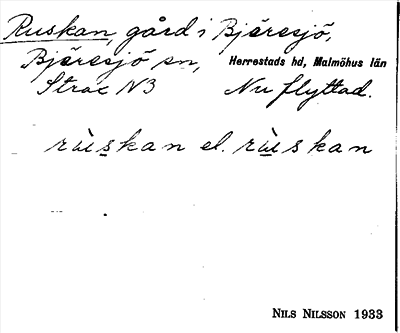 Ruskan, gård i Bjäresjö,
Bjäresjö sn, Herrestads hd, Malmöhus län
Strac N3 Nu flyttad.
rùskan el. rùskan
NILS NILSSON 1933